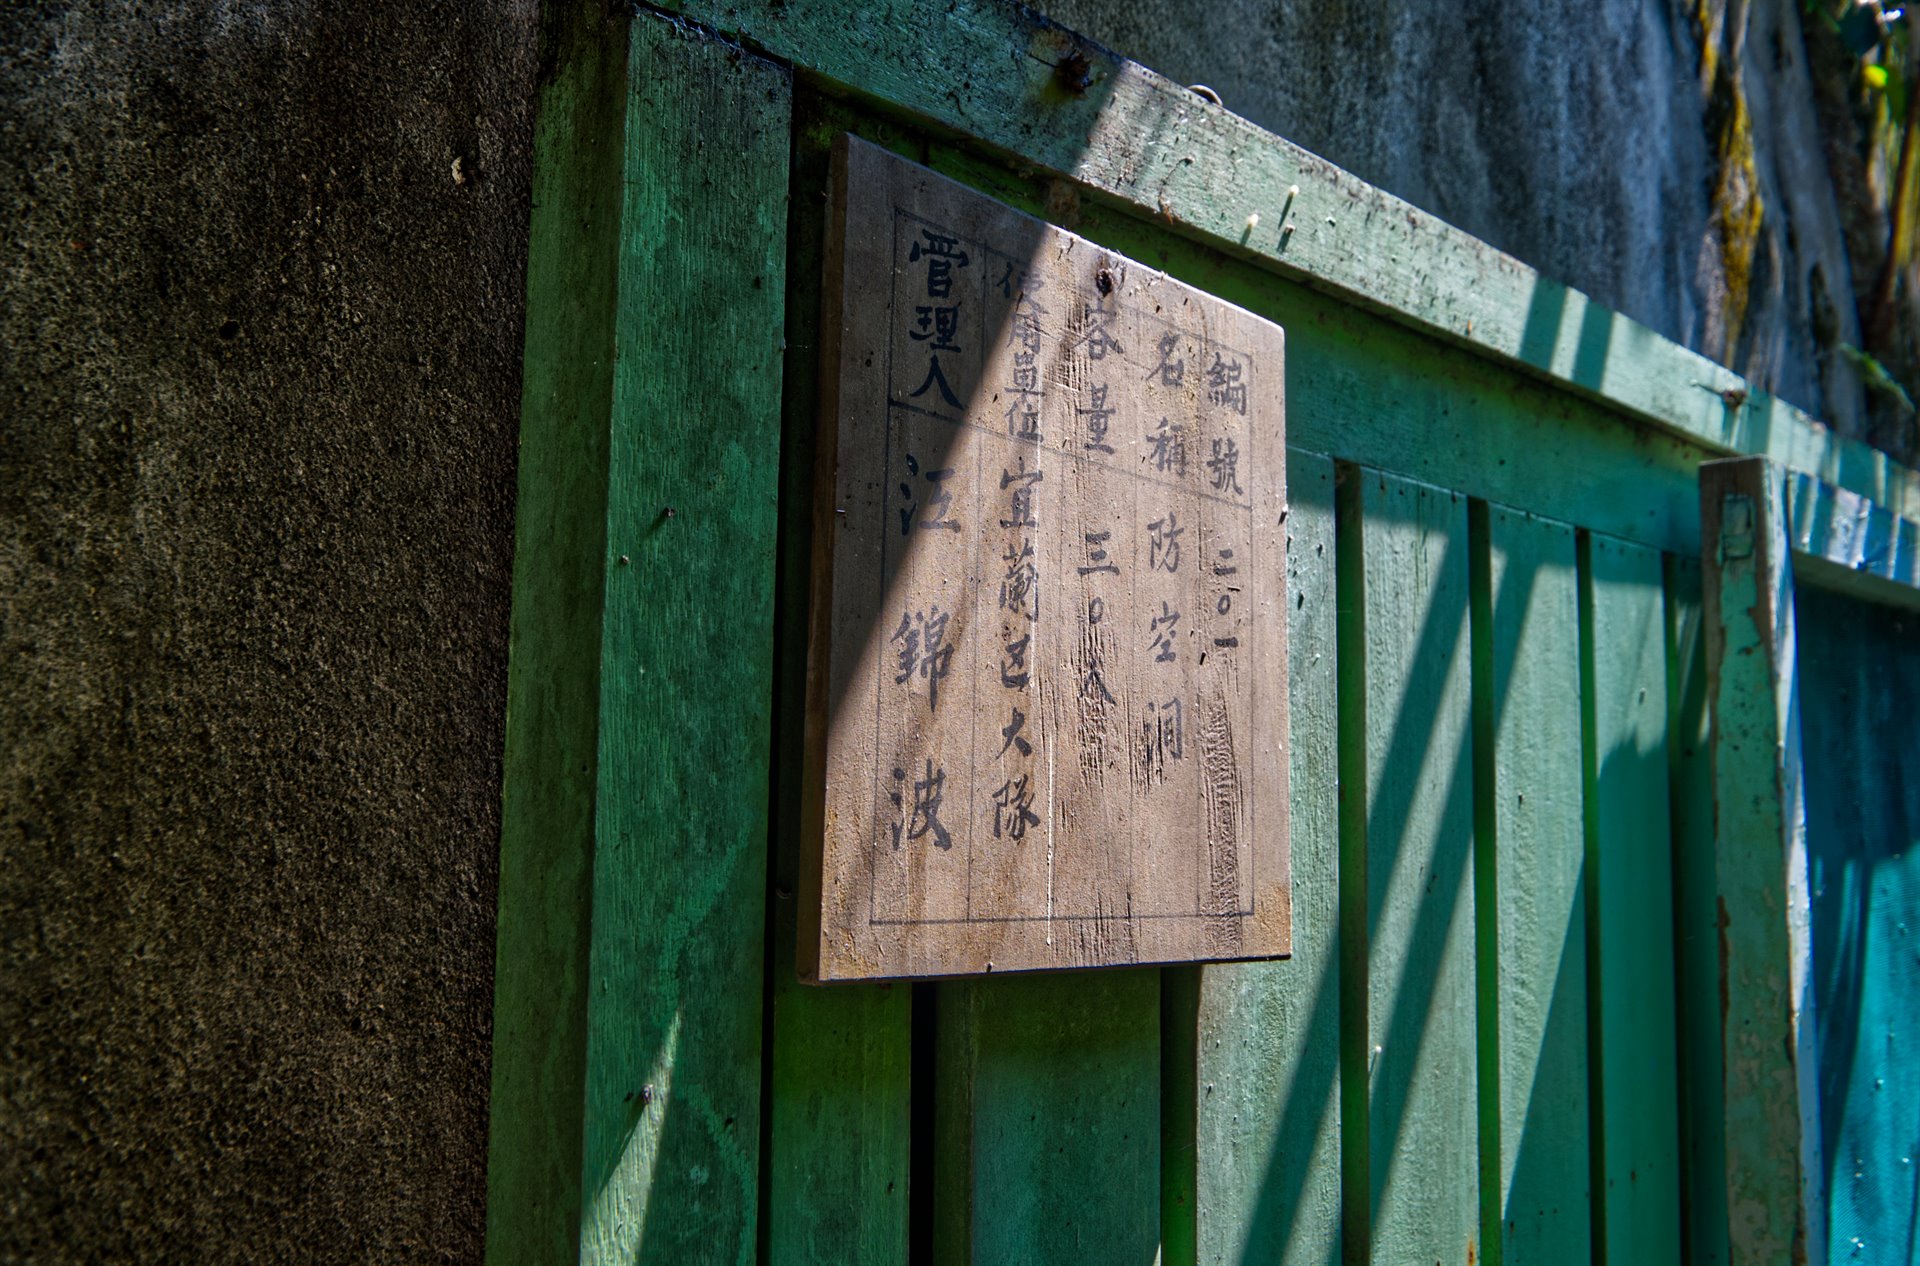 編號 二〇一
名稱 防空洞
容量 三〇人
使用單位 宜蘭区大隊
管理人 江錦波